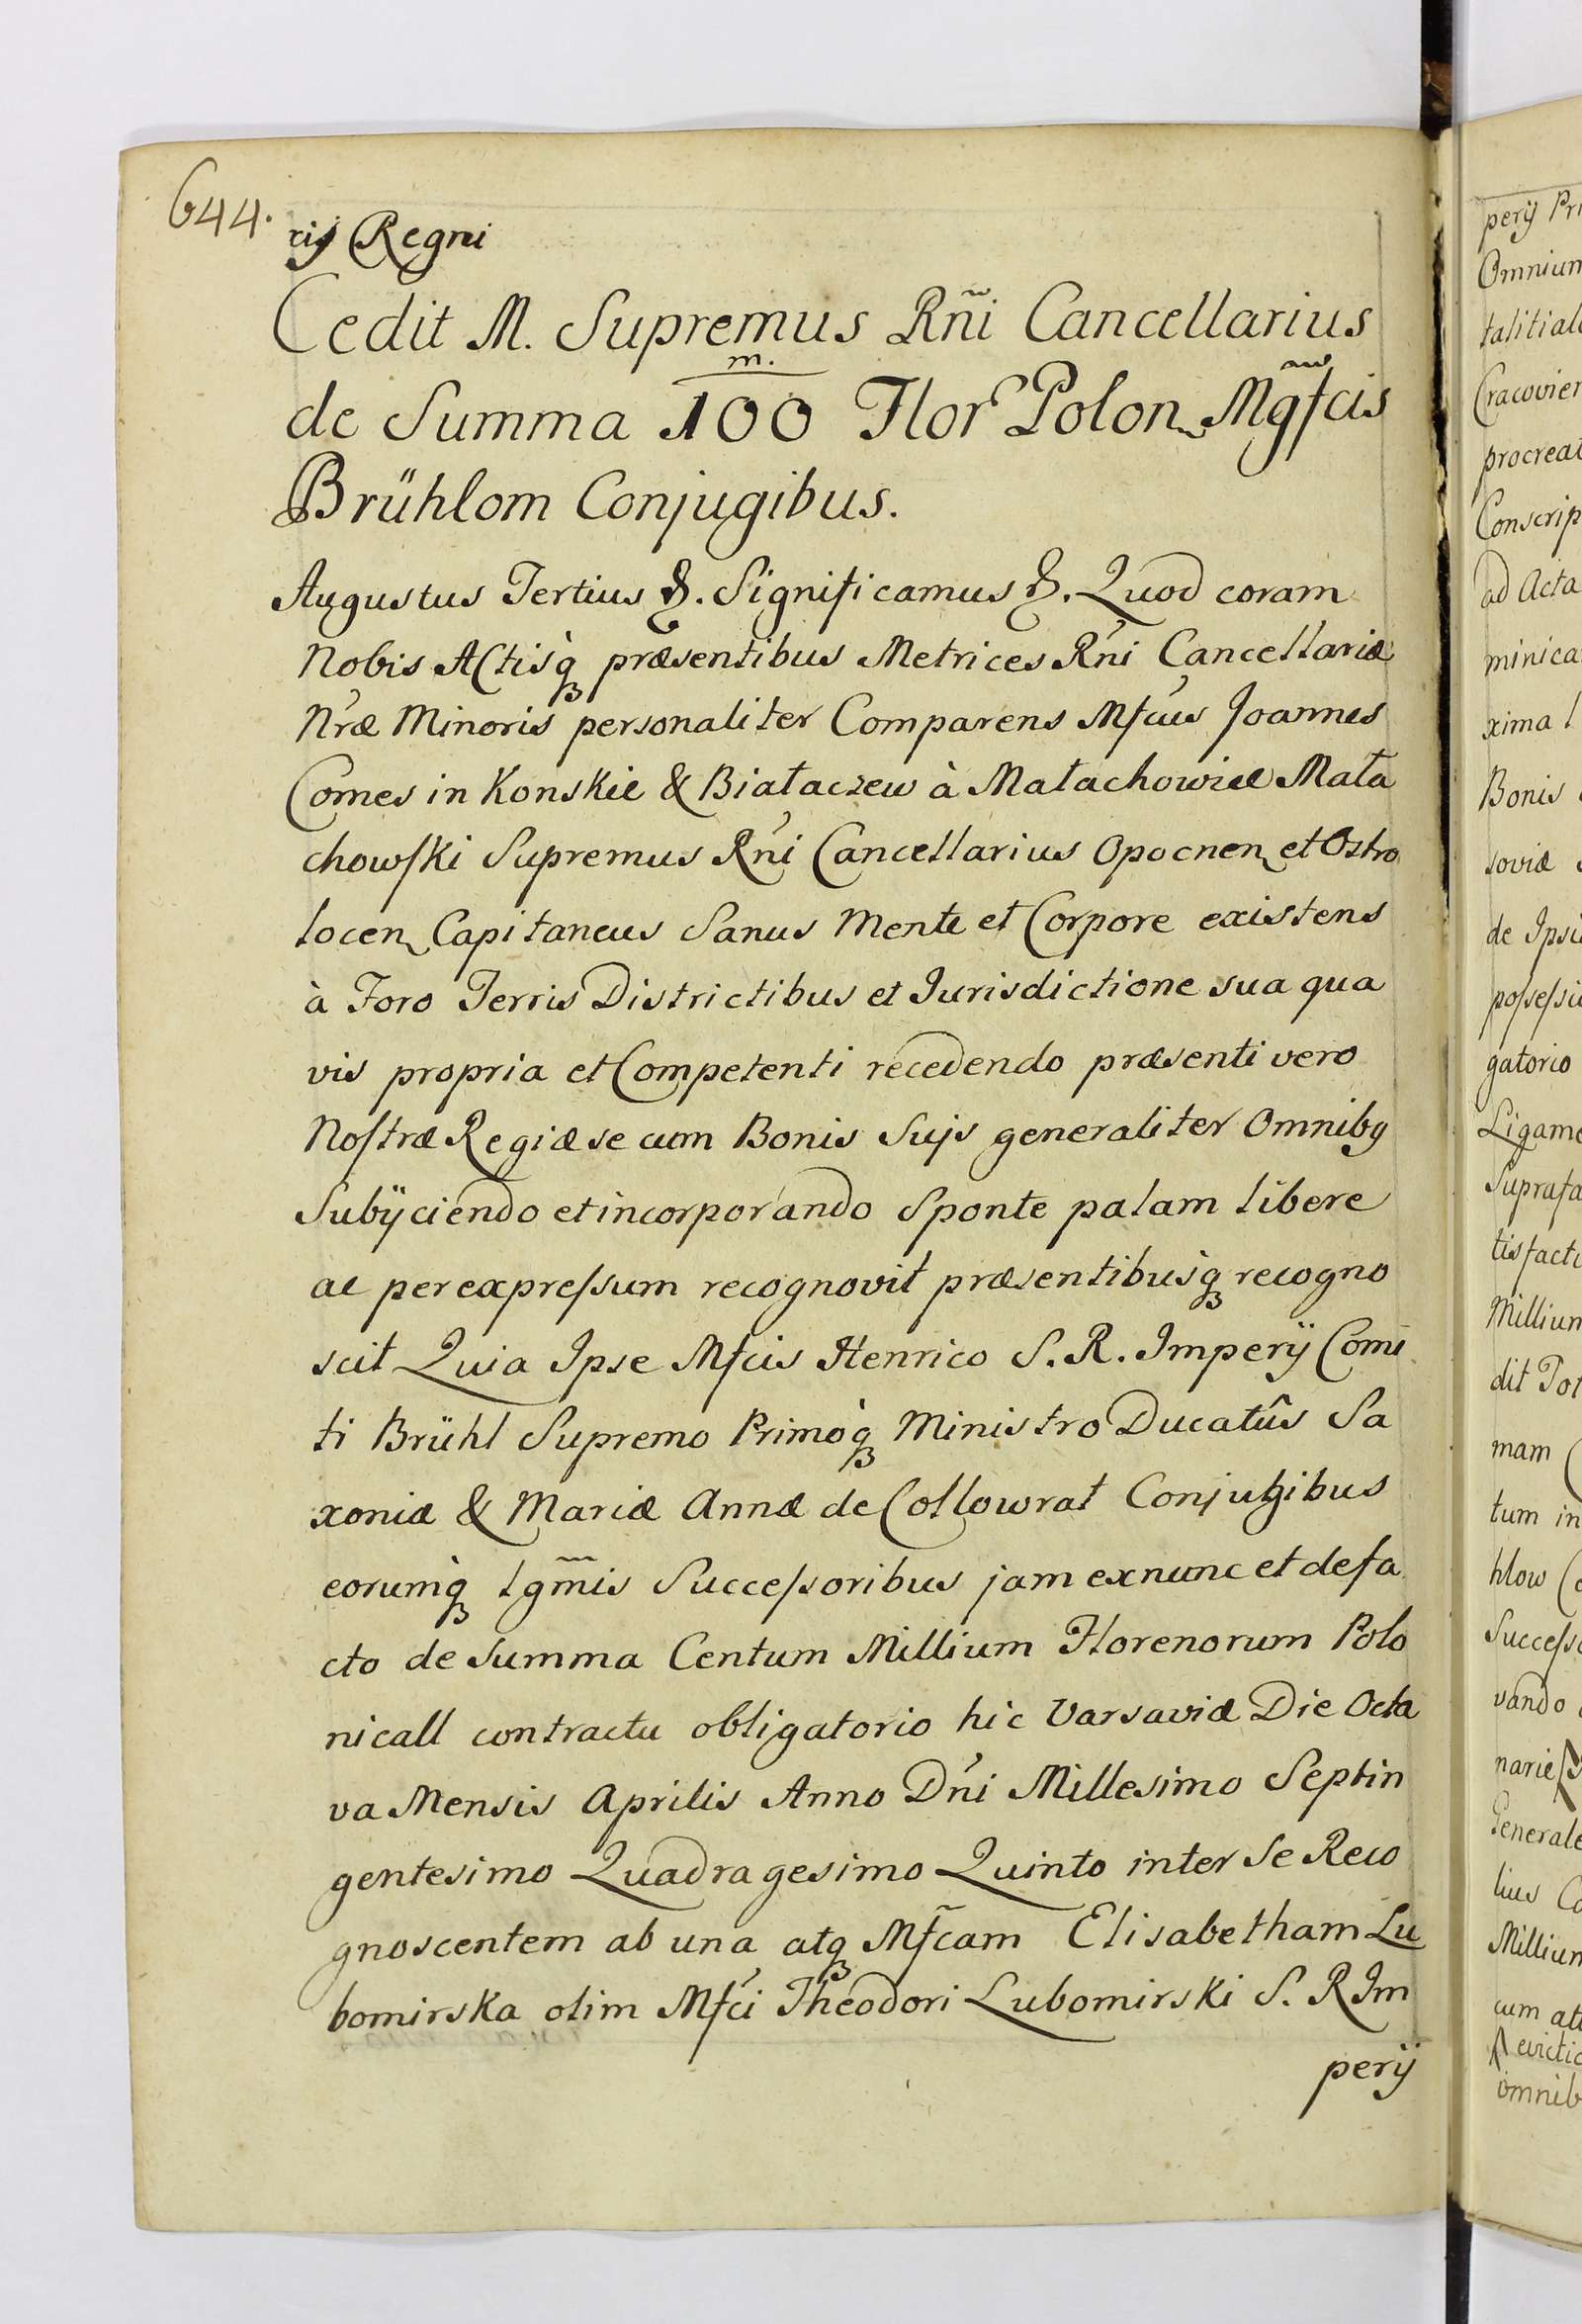 644.
rij Regni
Cedit M. Supremus Rñi Cancellarius
m.
de Summa 100 Flor Polon Mgfcis
Brühlom Conjugibus.
Augustus Tertius &. Significamus &. Quod coram
Nobis Actisq́ præsentibus Metrices Rńi Cancellariæ
Nŕæ Minoris personaliter Comparens Mfcus Joannes
Comes in Konskie & Białaczew à Małachowice Mała
chowski Supremus Rńi Cancellarius Opocnen et Ostro
locen Capitaneus Sanus Mente et Corpore existens
à Foro Terris Districtibus et Jurisdictione sua qua
vis propria et Competenti recedendo præsenti vero
Nostræ Regiæ se cum Bonis Suis generaliter Omnibq
Subijciendo et incorporando Sponte palam libere
ac per expressum recognovit præsentibusq́ recogno
scit Quia Ipse Mfcis Henrico S. R. Imperij Comi
ti Brühl Supremo Primoq́ Ministro Ducatûs Sa
xoniæ & Mariæ Annæ de Collowrat Conjugibus
eorumq́ lgm̃is Successoribus jam ex nunc et de fa
cto de Summa Centum Millium Florenorum Polo
nicall contractu obligatorio hic Varsaviæ Die Octa
va Mensis Aprilis Anno Dńi Millesimo Septin
gentesimo Quadragesimo Quinto inter Se Reco
gnoscentem ab una atq Mfc̃am Elisabetham Lu
bomirska olim Mfći Theodori Lubomirski S. R Im
perij
perij Pri
Omnium
talitiale
Cracovien
procreat
Conscrip
ad Acta
minica
xima l
Bonis
soviæ
de Ipsi
possessi
gatorio
Ligame
Suprafa
tisfacti
Millium
dit Tot
mam
tum in
hlow
Successo
vando
narie
Generale
lius Co
Millium
cum ati
evictio
omnib